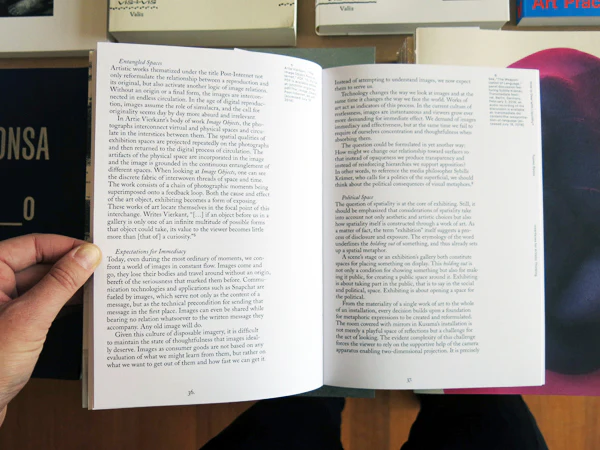 Valiz
Valiz
Art Prac
ONSA
_O
Entangled Spaces
Artistic works thematized under the title Post-Internet not
only reformulate the relationship between a reproduction and
its original, but also activate another logic of image relations.
Without an origin or a final form, the images are intercon-
nected in endless circulation. In the age of digital reproduc-
tion, images assume the role of simulacra, and the call for
originality seems day by day more absurd and irrelevant.
In Artie Vierkant's body of work Image Objects, the pho-
tographs interconnect virtual and physical spaces and circu-
late in the interstices between them. The spatial qualities of
exhibition spaces are projected repeatedly on the photographs
and then returned to the digital process of circulation. The
artifacts of the physical space are incorporated in the image
and the image is grounded in the continuous entanglement of
different spaces. When looking at Image Objects, one can see
the discrete fabric of interwoven threads of space and time.
The work consists of a chain of photographic moments being
superimposed onto a feedback loop. Both the cause and effect
of the art object, exhibiting becomes a form of exposing.
These works of art locate themselves in the focal point of this
interchange. Writes Vierkant, "[…] if an object before us in a
gallery is only one of an infinite multitude of possible forms
that object could take, its value to the viewer becomes little
more than [that of] a curiosity."
Expectations for Immediacy
Today, even during the most ordinary of moments, we con-
front a world of images in constant flow. Images come and
go, they lose their bodies and travel around without an origin,
bereft of the seriousness that marked them before. Commu-
nication technologies and applications such as Snapchat are
fueled by images, which serve not only as the content of a
message, but as the technical precondition for sending that
message in the first place. Images can even be shared while
bearing no relation whatsoever to the written message they
accompany. Any old image will do.
Given this culture of disposable imagery, it is difficult
to maintain the state of thoughtfulness that images ideal-
ly deserve. Images as consumer goods are not based on any
evaluation of what we might learn from them, but rather on
what we want to get out of them and how fast we can get it.
36
Instead of attempting to understand images, we now expect
them to serve us.
Technology changes the way we look at images and at the
same time it changes the way we face the world. Works of
art act as indicators of this process. In the current culture of
restlessness, images are instantaneous and viewers grow ever
more demanding for immediate effect. We demand of images
immediacy and effectiveness, but at the same time we fail to
require of ourselves concentration and thoughtfulness when
absorbing them.
The question could be formulated in yet another way:
How might we change our relationship toward surfaces so
that instead of opaqueness we produce transparency and
instead of reinforcing hierarchies we support apposition?
In other words, to reference the media philosopher Sybille
Krämer, who calls for a politics of the superficial, we should
think about the political consequences of visual metaphors.
Political Space
The question of spatiality is at the core of exhibiting. Still, it
should be emphasized that considerations of spatiality take
into account not only aesthetic and artistic choices but also
how spatiality itself is constructed through a work of art. As
a matter of fact, the term "exhibition" itself suggests a pro-
cess of disclosure and exposure. The etymology of the word
underlines the holding out of something, and thus already sets
up a spatial metaphor.
A scene's stage or an exhibition's gallery birth constitutes
spaces for placing something on display. This holding out is
not only a condition for drawing something but also for mak-
ing it public, for creating a public space around it. Exhibiting
is about taking part in the public, that is to say in the social
and political, space. Exhibiting is about opening a space for
the political.
From the materiality of a single work of art to the whole
of an installation, every decision builds upon a foundation
for metaphoric expressions to be created and reformulated.
The room covered with mirrors in Kusama's installation is
not merely a playful space of reflections but a challenge for
the act of looking. The evident complexity of this challenge
forces the viewer to rely on the supportive help of the camera
apparatus enabling two-dimensional projection. It is precisely
37